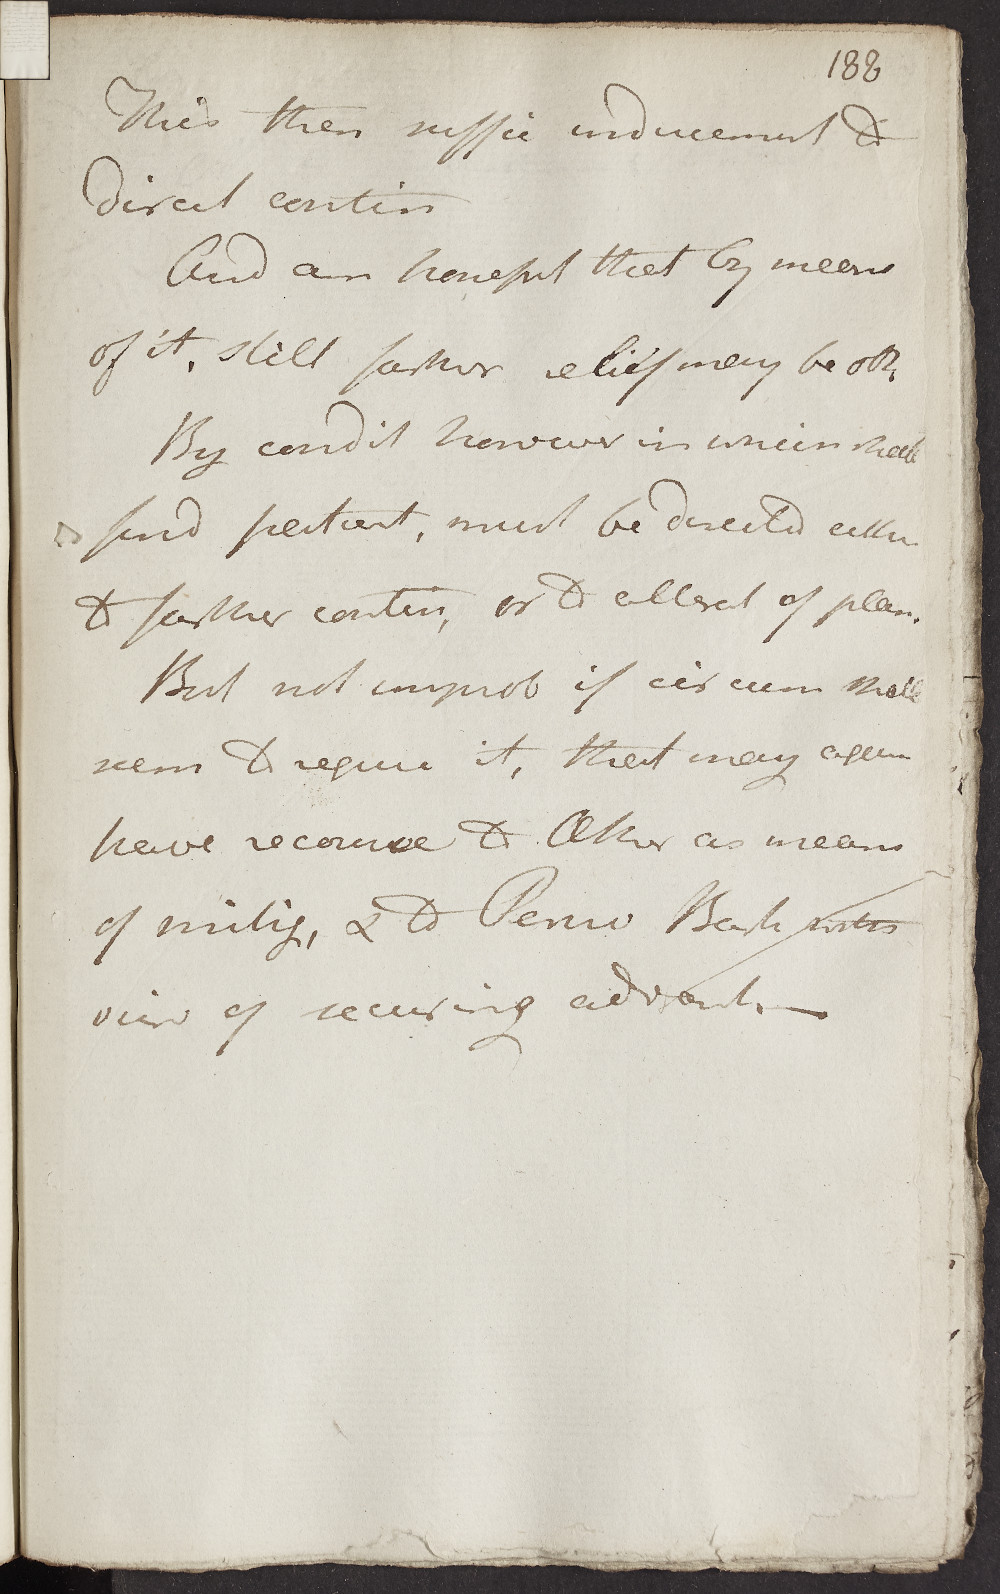 188
This then suffic inducement to
direct contin
And am hopeful that by means
of it, still farther relief may be obt,
By condit however in which shall
find patient, must be directed either
to farther contin, or to alterat of plan.
But not improb if circum shall
seem to require it, that may again
have recourse to Æther as means
of mitig, & to Peruv Bark with
view of securing advant. —